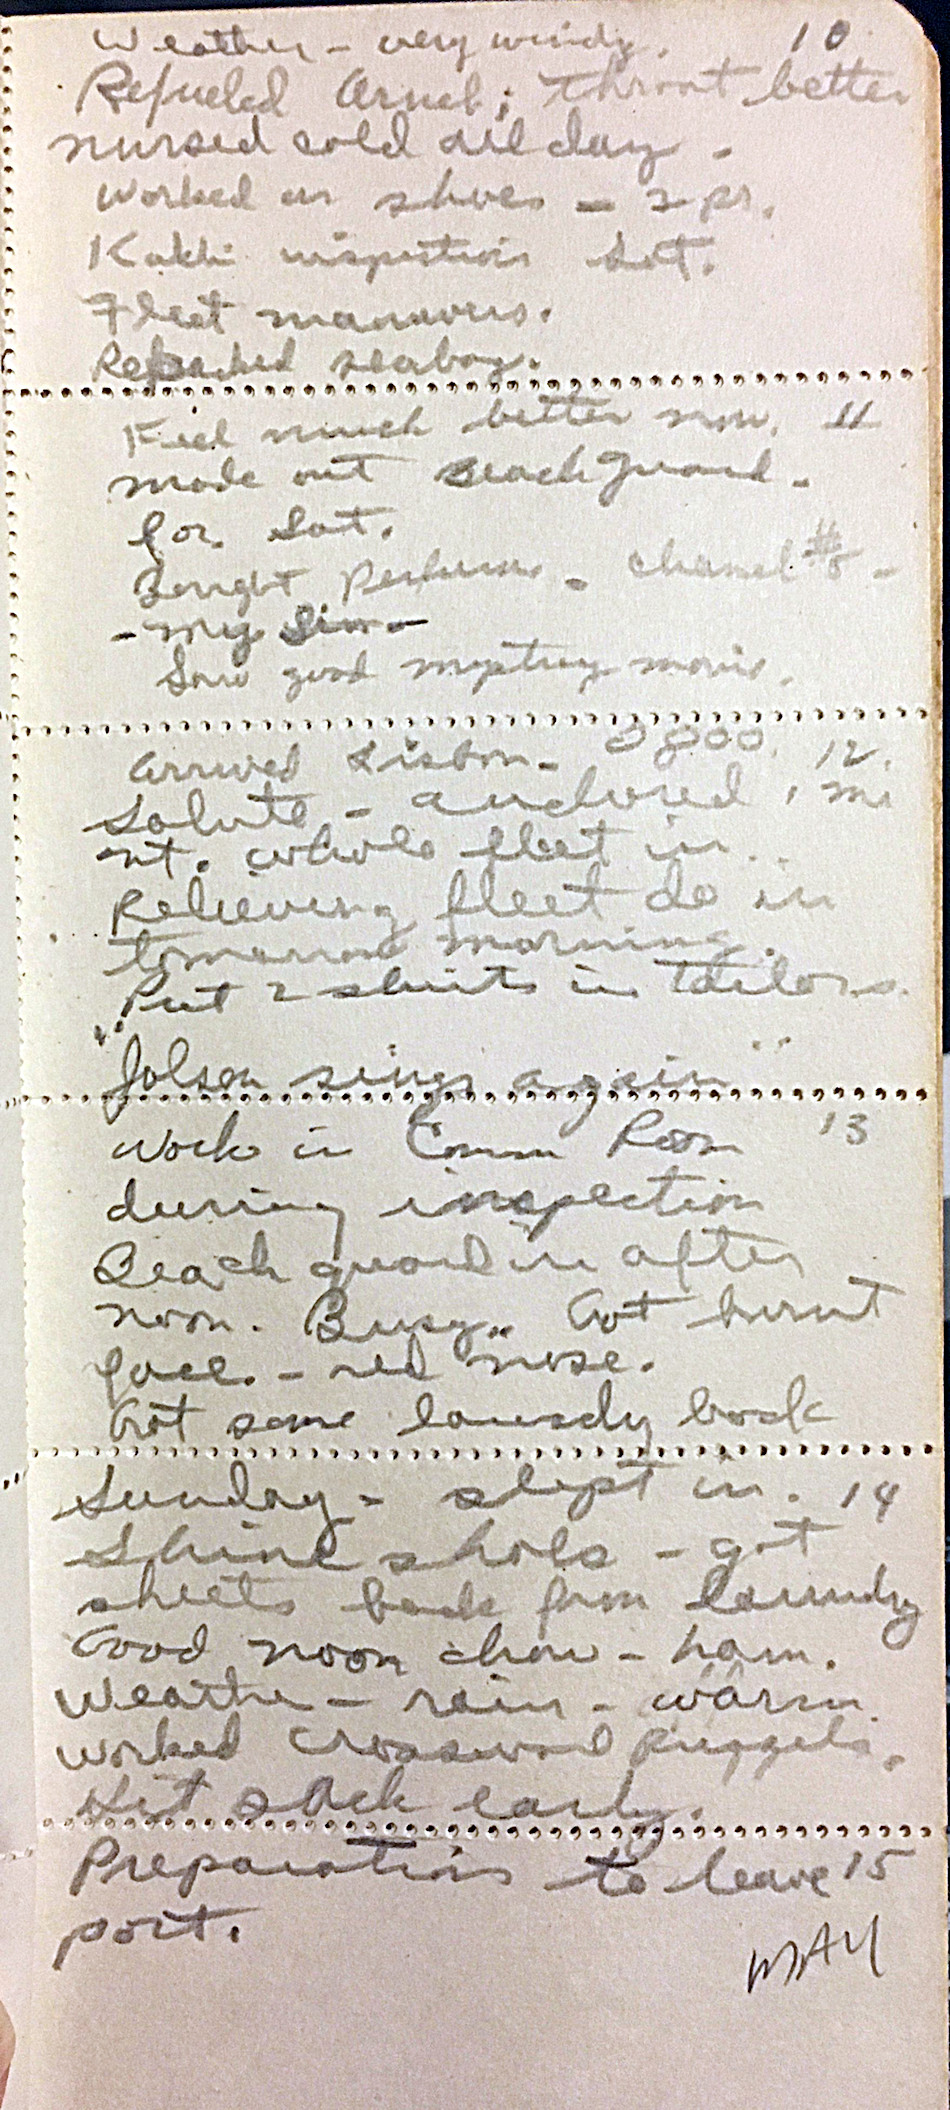 Weather - very windy. 10
Refueled Arneb; throat better
nursed cold all day -
Worked on shoes - 2 pr.
Kakhi inspection Sat.
Fleet maneuvers.
Repacked seabag.
Feel much better now. 11
made out Beach Guard -
for Sat.
Bought Perfume - Chanel #5 -
- My Sin -
Saw good mystery movie.
Arrived Lisbon - 0800. 12.
Salute - anchored,
nt. whole fleet in.
Relieving fleet in
tomorrow morning.
Put 2 shirts in tailors.
"Jolson sings again"
Work in Comm Room 13
during inspection
Beach guard in after
noon. Busy. Got burnt
face. - red nose.
Got some laundry back
Sunday - slept in. 14
Shine shoes - got
sheets back from laundry
Good noon chow - ham.
Weather - rain - warm
Worked crossword puzzels.
Hit sack early.
Preparations to leave 15
port.
MAY